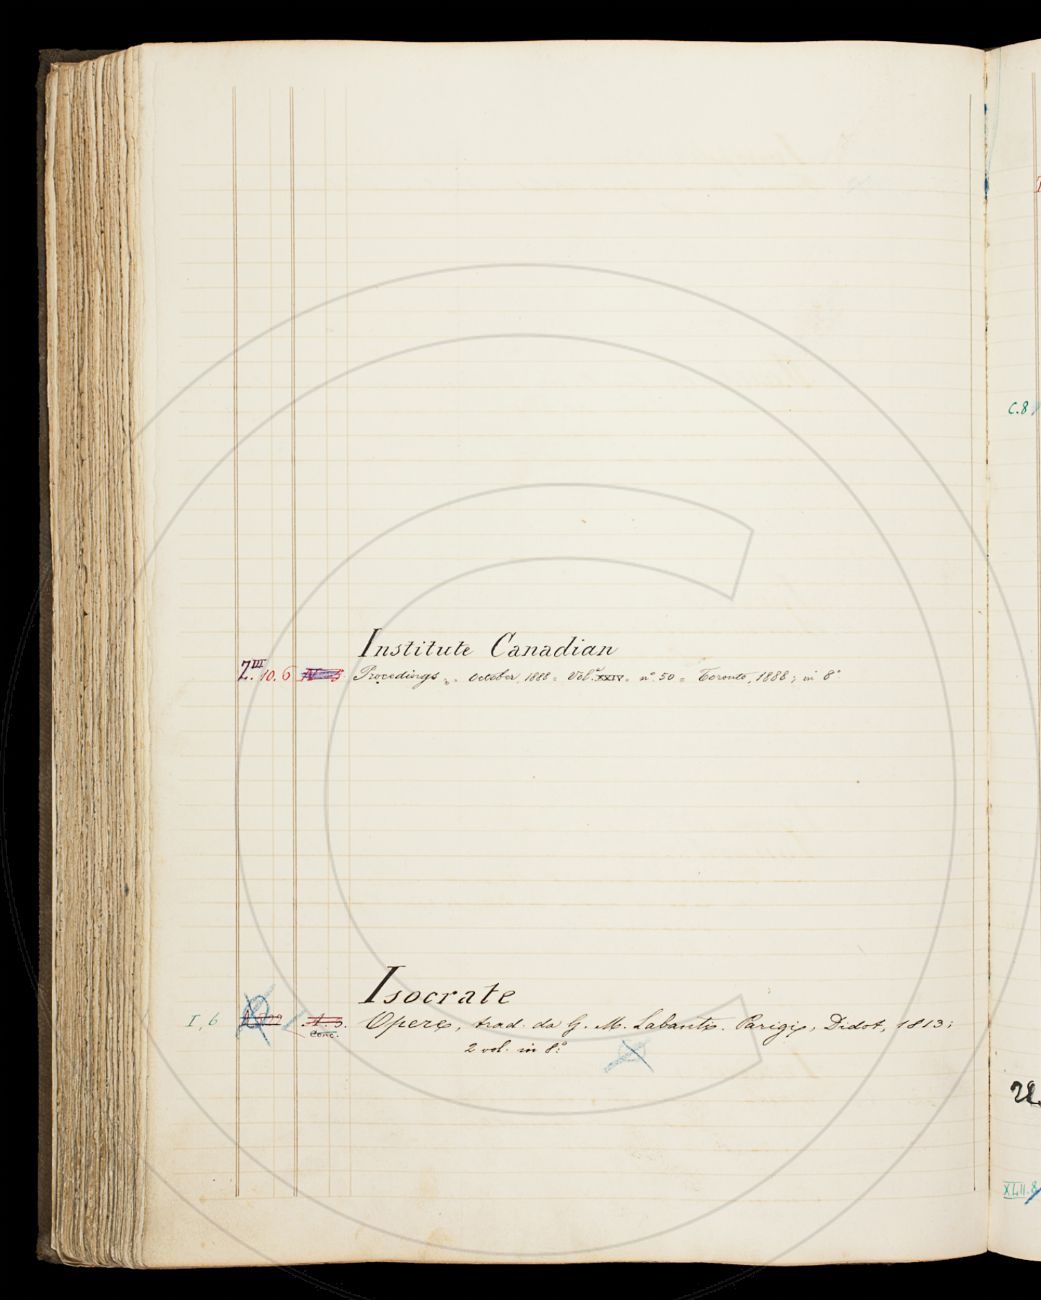 Institute Canadian
Z.III 10. 6 Procedings „. October, 1888 = Vol.e XXIV. n.° 50 = Toronto, 1888; in 8°
Isocrate
I, 6 A. 3. Opere, trad. da G. M. Labanti. Parigi, Didot, 1813;
Conc.
2 vol. in 8.°
C.8
XLII.8